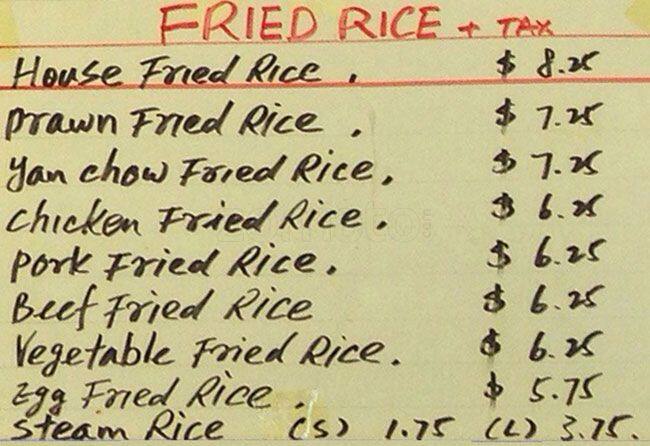 FRIED RICE + TAX
House Fried Rice . $ 8.25
Prawn Fried Rice . $ 7.25
Yan chow Fried Rice . $ 7.25
chicken Fried Rice . $ 6.25
Pork Fried Rice . $ 6.25
Beef Fried Rice $ 6.25
Vegetable Fried Rice . $ 6.25
Egg Fried Rice . $ 5.75
Steam Rice (S) 1.75 (L) 3.75.